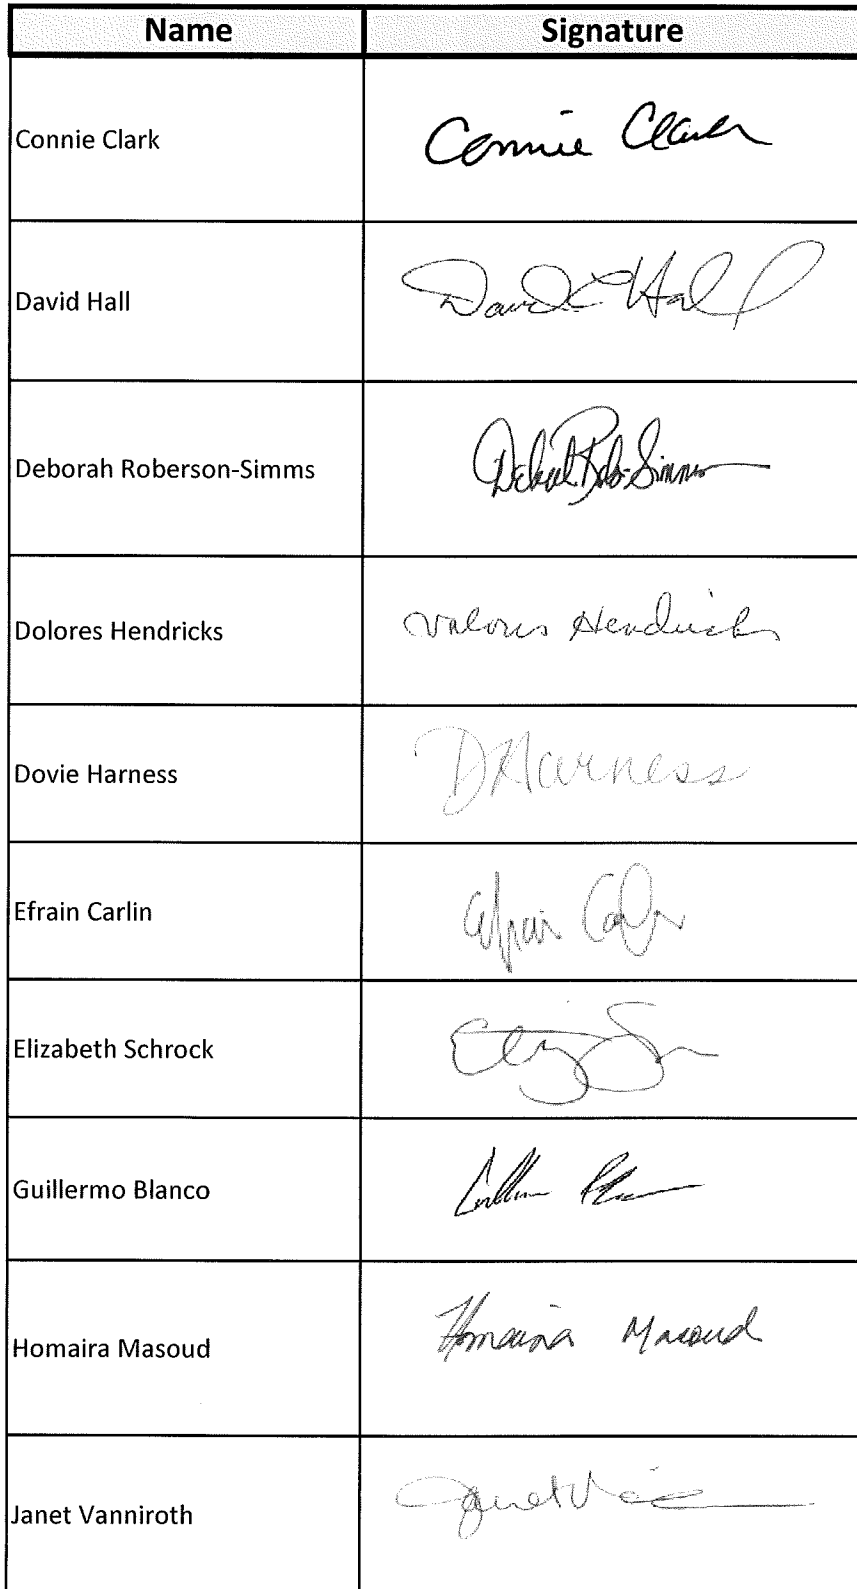 Name Signature
Connie Clark Connie Clark
David Hall David C Hall
Deborah Roberson-Simms
Dolores Hendricks Hendricks
Dovie Harness DHarness
Efrain Carlin Efrain
Elizabeth Schrock
Guillermo Blanco
Homaira Masoud Homaira Masoud
Janet Vanniroth Janet